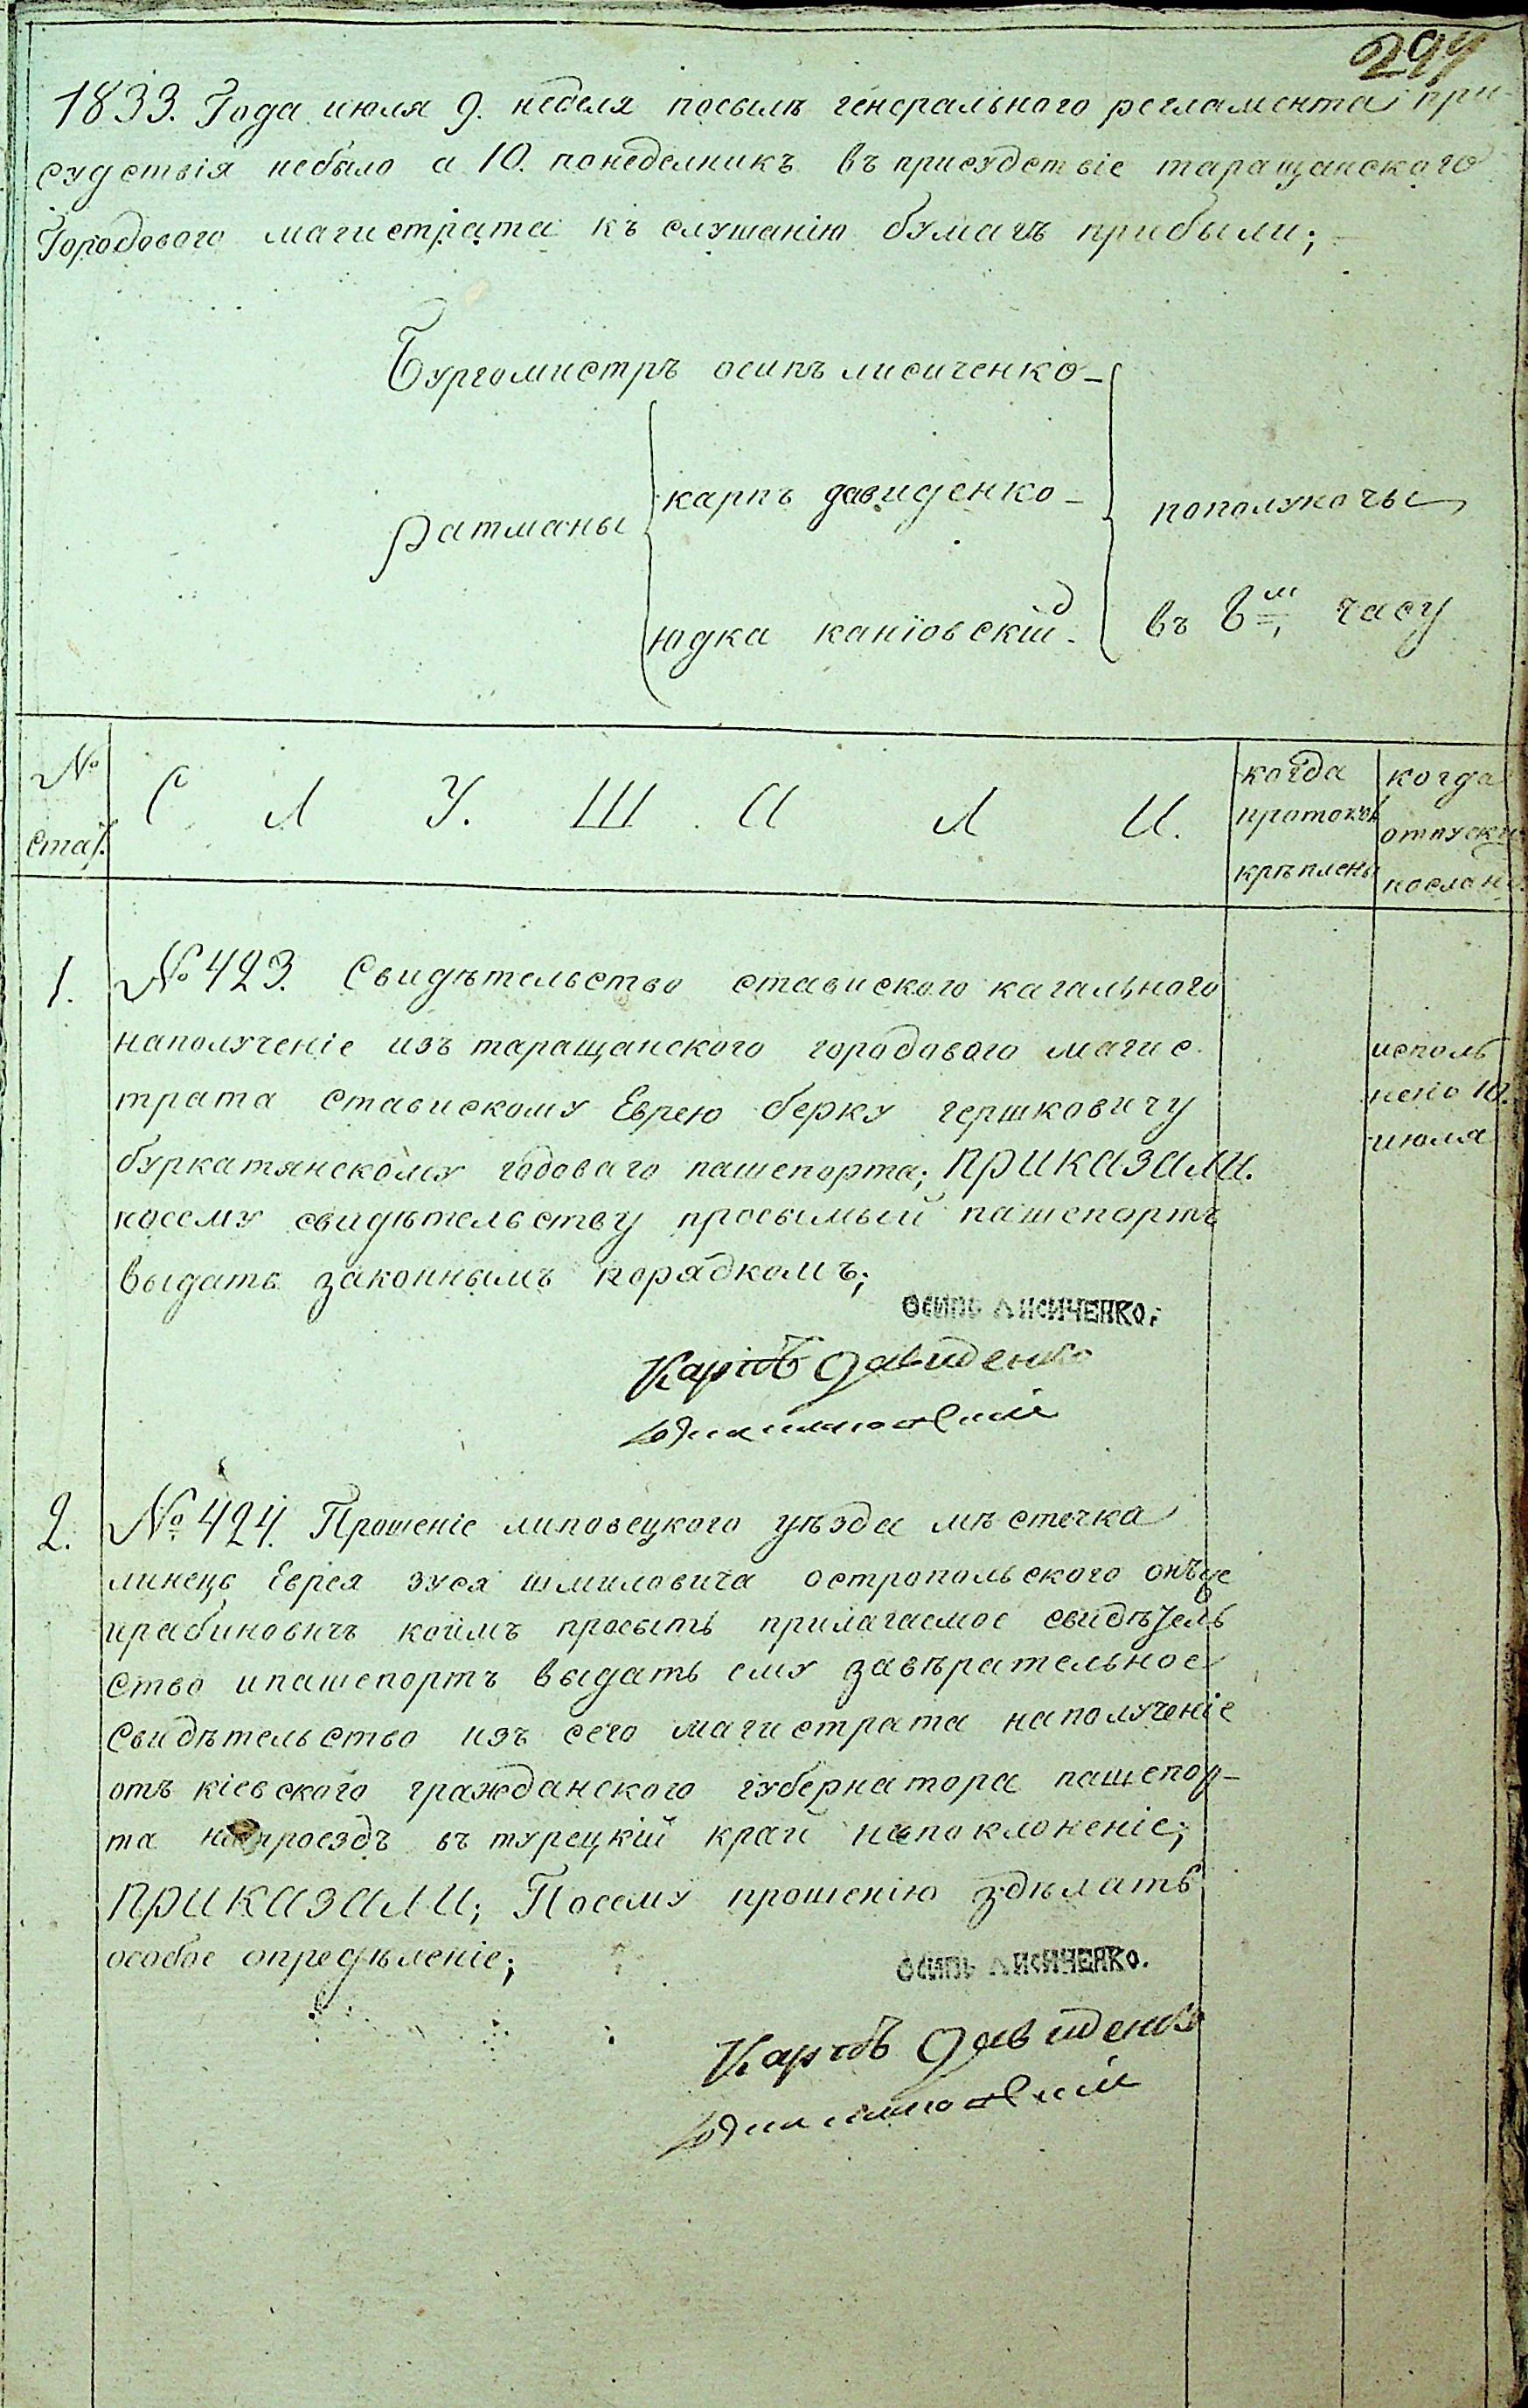 297
1833. Года июля 9. неделя посылѣ генеральнаго регламента при-
судствія небыло а 10. понеделникъ въ присудствіе таращанского
Городового магистрата къ слушанію бумагъ прибыли;
Бургомистръ осипъ лисиченко
ратманы
карпъ давиденко
пополуночы
юдка каніовскій
въ 8м, часу
№ стат.
С Л У Ш А Л И.
когда протокол крѣплены
когда отпуски посланы
1. № 423. Свидѣтельство ставиского кагального
наполученіе изъ таращанского городового магис
трата ставискому Еврею берку гершковичу
буркатянскому годоваго пашепорта; приказали.
посему свидѣтельству просымый пашепортъ
выдать законнымъ порядкомъ;
исполь
нено 10.
июля
Осипъ Лисиченко.
Карпъ Давиденко
2. № 424. Прошеніе липовецкого уѣзда мѣстечка
линецъ Еврея зуся шмиловича остропольского онъже
ирабиновичъ коимъ просытъ прилагаемое свидѣтель
ство ипашепортъ выдать ему завѣрательное
свидѣтельство изъ сего магистрата наполученіе
отъ кіевского гражданского губернатора пашепор-
та напроездъ въ турецкій край напоклоненіе;
приказали; Посему прошенію здѣлать
особое опредѣленіе;
Осипъ Лисиченко.
Карпъ Давиденко